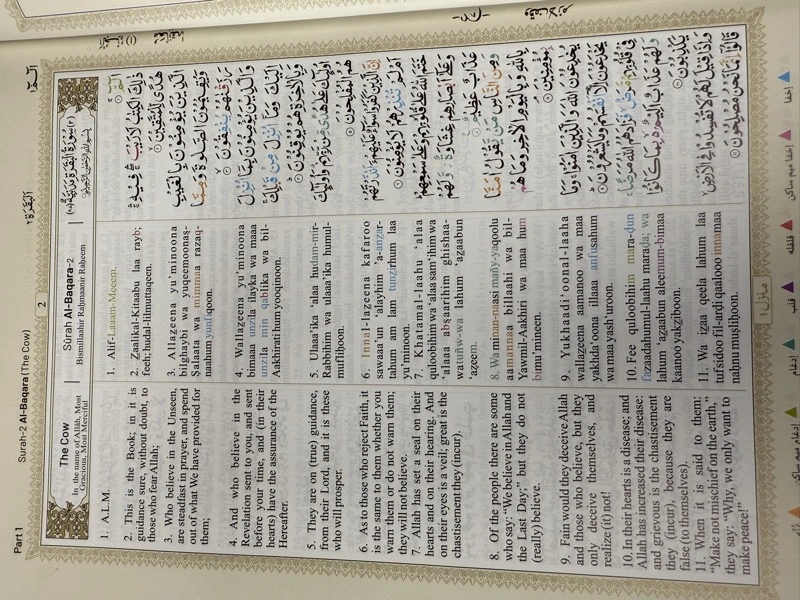 Part 1
Surah-2 Al-Baqara (The Cow)
2
البقرة ٢
الٓمّٓ ١
The Cow
In the name of Allāh, Most
Gracious, Most Merciful
1. A.L.M.
2. This is the Book; in it is
guidance sure, without doubt, to
those who fear Allah;
3. Who believe in the Unseen,
are steadfast in prayer, and spend
out of what We have provided for
them;
4. And who believe in the
Revelation sent to you, and sent
before your time, and (in their
hearts) have the assurance of the
Hereafter.
5. They are on (true) guidance,
from their Lord, and it is these
who will prosper.
6. As to those who reject Faith, it
is the same to them whether you
warn them or do not warn them;
they will not believe.
7. Allah has set a seal on their
hearts and on their hearing. And
on their eyes is a veil; great is the
chastisement they (incur).
8. Of the people there are some
who say: "We believe in Allah and
the Last Day;" but they do not
(really) believe.
9. Fain would they deceive Allah
and those who believe, but they
only deceive themselves, and
realize (it) not!
10. In their hearts is a disease; and
Allah has increased their disease:
and grievous is the chastisement
they (incur), because they are
false (to themselves).
11. When it is said to them:
"Make not mischief on the earth,"
they say: "Why, we only want to
make peace!"
Sûrah Al-Baqara-2
Bismillaahir Raḥmaanir Raḥeem
1. Alif-Laaam-Meeem.
2. Zaalikal-Kitaabu laa rayb;
feeh; hudal-lilmuttaqeen.
3. Allazeena yu'minoona
bilghaybi wa yuqeemoonaṣ-
Ṣalaata wa mimmaa razaq-
naahum yunfiqoon.
4. Wallazeena yu'minoona
bimaaa unzila ilayka wa maaa
unzila min qablika wa bil-
Aakhirati hum yooqinoon.
5. Ulaaa'ika 'alaa hudam-mir-
Rabbihim wa ulaaa'ika humul-
mufliḥoon.
6. Innal-lazeena kafaroo
sawaaa'un 'alayhim 'a-anzar-
tahum am lam tunzirhum laa
yu'minoon.
7. Khatamal-laahu 'alaa
quloobihim wa 'alaa sam'ihim wa
'alaaa abṣaarihim ghishaa-
watuñw-wa lahum 'aẓaabun
'aẓeem.
8. Wa minan-naasi mañy-yaqoolu
aamannaa billaahi wa bil-
Yawmil-Aakhiri wa maa hum
bimu'mineen.
9. Yukhaadi'oonal-laaha
wallazeena aamanoo wa maa
yakhda'oona illaaa anfusahum
wa maa yash'uroon.
10. Fee quloobihim maraḍun
fazaadahumul-laahu maraḍa; wa
lahum 'azaabun aleemum-bimaa
kaanoo yakziboon.
11. Wa izaa qeela lahum laa
tufsidoo fil-arḍi qaalooo innamaa
naḥnu muṣliḥoon.
الٓمّٓ
ذٰلِكَ الْكِتٰبُ لَا رَيْبَ فِيْهِ
هُدًى لِّلْمُتَّقِيْنَ
الَّذِيْنَ يُؤْمِنُوْنَ بِالْغَيْبِ
وَيُقِيْمُوْنَ الصَّلٰوةَ وَمِمَّا
رَزَقْنٰهُمْ يُنْفِقُوْنَ
وَالَّذِيْنَ يُؤْمِنُوْنَ بِمَآ اُنْزِلَ
اِلَيْكَ وَمَآ اُنْزِلَ مِنْ قَبْلِكَ
وَبِالْاٰخِرَةِ هُمْ يُوْقِنُوْنَ
اُولٰٓئِكَ عَلٰى هُدًى مِّنْ رَّبِّهِمْ
وَاُولٰٓئِكَ
هُمُ الْمُفْلِحُوْنَ
اِنَّ الَّذِيْنَ كَفَرُوْا سَوَآءٌ عَلَيْهِمْ ءَاَنْذَرْتَهُمْ
اَمْ لَمْ تُنْذِرْهُمْ لَا يُؤْمِنُوْنَ
خَتَمَ اللّٰهُ عَلٰى قُلُوْبِهِمْ وَعَلٰى سَمْعِهِمْ
وَعَلٰٓى اَبْصَارِهِمْ غِشَاوَةٌ وَّلَهُمْ
عَذَابٌ عَظِيْمٌ
وَمِنَ النَّاسِ مَنْ يَّقُوْلُ اٰمَنَّا
بِاللّٰهِ وَبِالْيَوْمِ الْاٰخِرِ وَمَا هُمْ
بِمُؤْمِنِيْنَ
يُخٰدِعُوْنَ اللّٰهَ وَالَّذِيْنَ اٰمَنُوْا وَمَا
يَخْدَعُوْنَ اِلَّآ اَنْفُسَهُمْ وَمَا يَشْعُرُوْنَ
فِيْ قُلُوْبِهِمْ مَّرَضٌ فَزَادَهُمُ اللّٰهُ مَرَضًا
وَلَهُمْ عَذَابٌ اَلِيْمٌۢ بِمَا كَانُوْا
يَكْذِبُوْنَ
وَاِذَا قِيْلَ لَهُمْ لَا تُفْسِدُوْا فِى الْاَرْضِ
قَالُوْٓا اِنَّمَا نَحْنُ مُصْلِحُوْنَ
منزل ١
إخفا
إخفا میم ساکن
قلقله
قلب
إدغام
إدغام میم ساكن